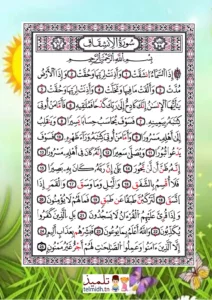 سورة الانشقاق
بسم الله الرحمن الرحيم
إذا السماء انشقت ١ وأذنت لربها وحقت ٢ وإذا الأرض
مدت ٣ وألقت ما فيها وتخلت ٤ وأذنت لربها وحقت ٥
يا أيها الإنسان إنك كادح إلى ربك كدحا فملاقيه ٦ فأما من أوتي
كتابه بيمينه ٧ فسوف يحاسب حسابا يسيرا ٨ وينقلب
إلى أهله مسرورا ٩ وأما من أوتي كتابه وراء ظهره ١٠ فسوف
يدعوا ثبورا ١١ ويصلى سعيرا ١٢ إنه كان في أهله مسرورا ١٣
إنه ظن أن لن يحور ١٤ بلى إن ربه كان به بصيرا ١٥
فلا أقسم بالشفق ١٦ والليل وما وسق ١٧ والقمر إذا
اتسق ١٨ لتركبن طبقا عن طبق ١٩ فما لهم لا يؤمنون ٢٠
وإذا قرئ عليهم القرآن لا يسجدون ٢١ بل الذين كفروا
يكذبون ٢٢ والله أعلم بما يوعون ٢٣ فبشرهم بعذاب أليم ٢٤
إلا الذين آمنوا وعملوا الصالحات لهم أجر غير ممنون ٢٥
تلميذ
telmidh.tn